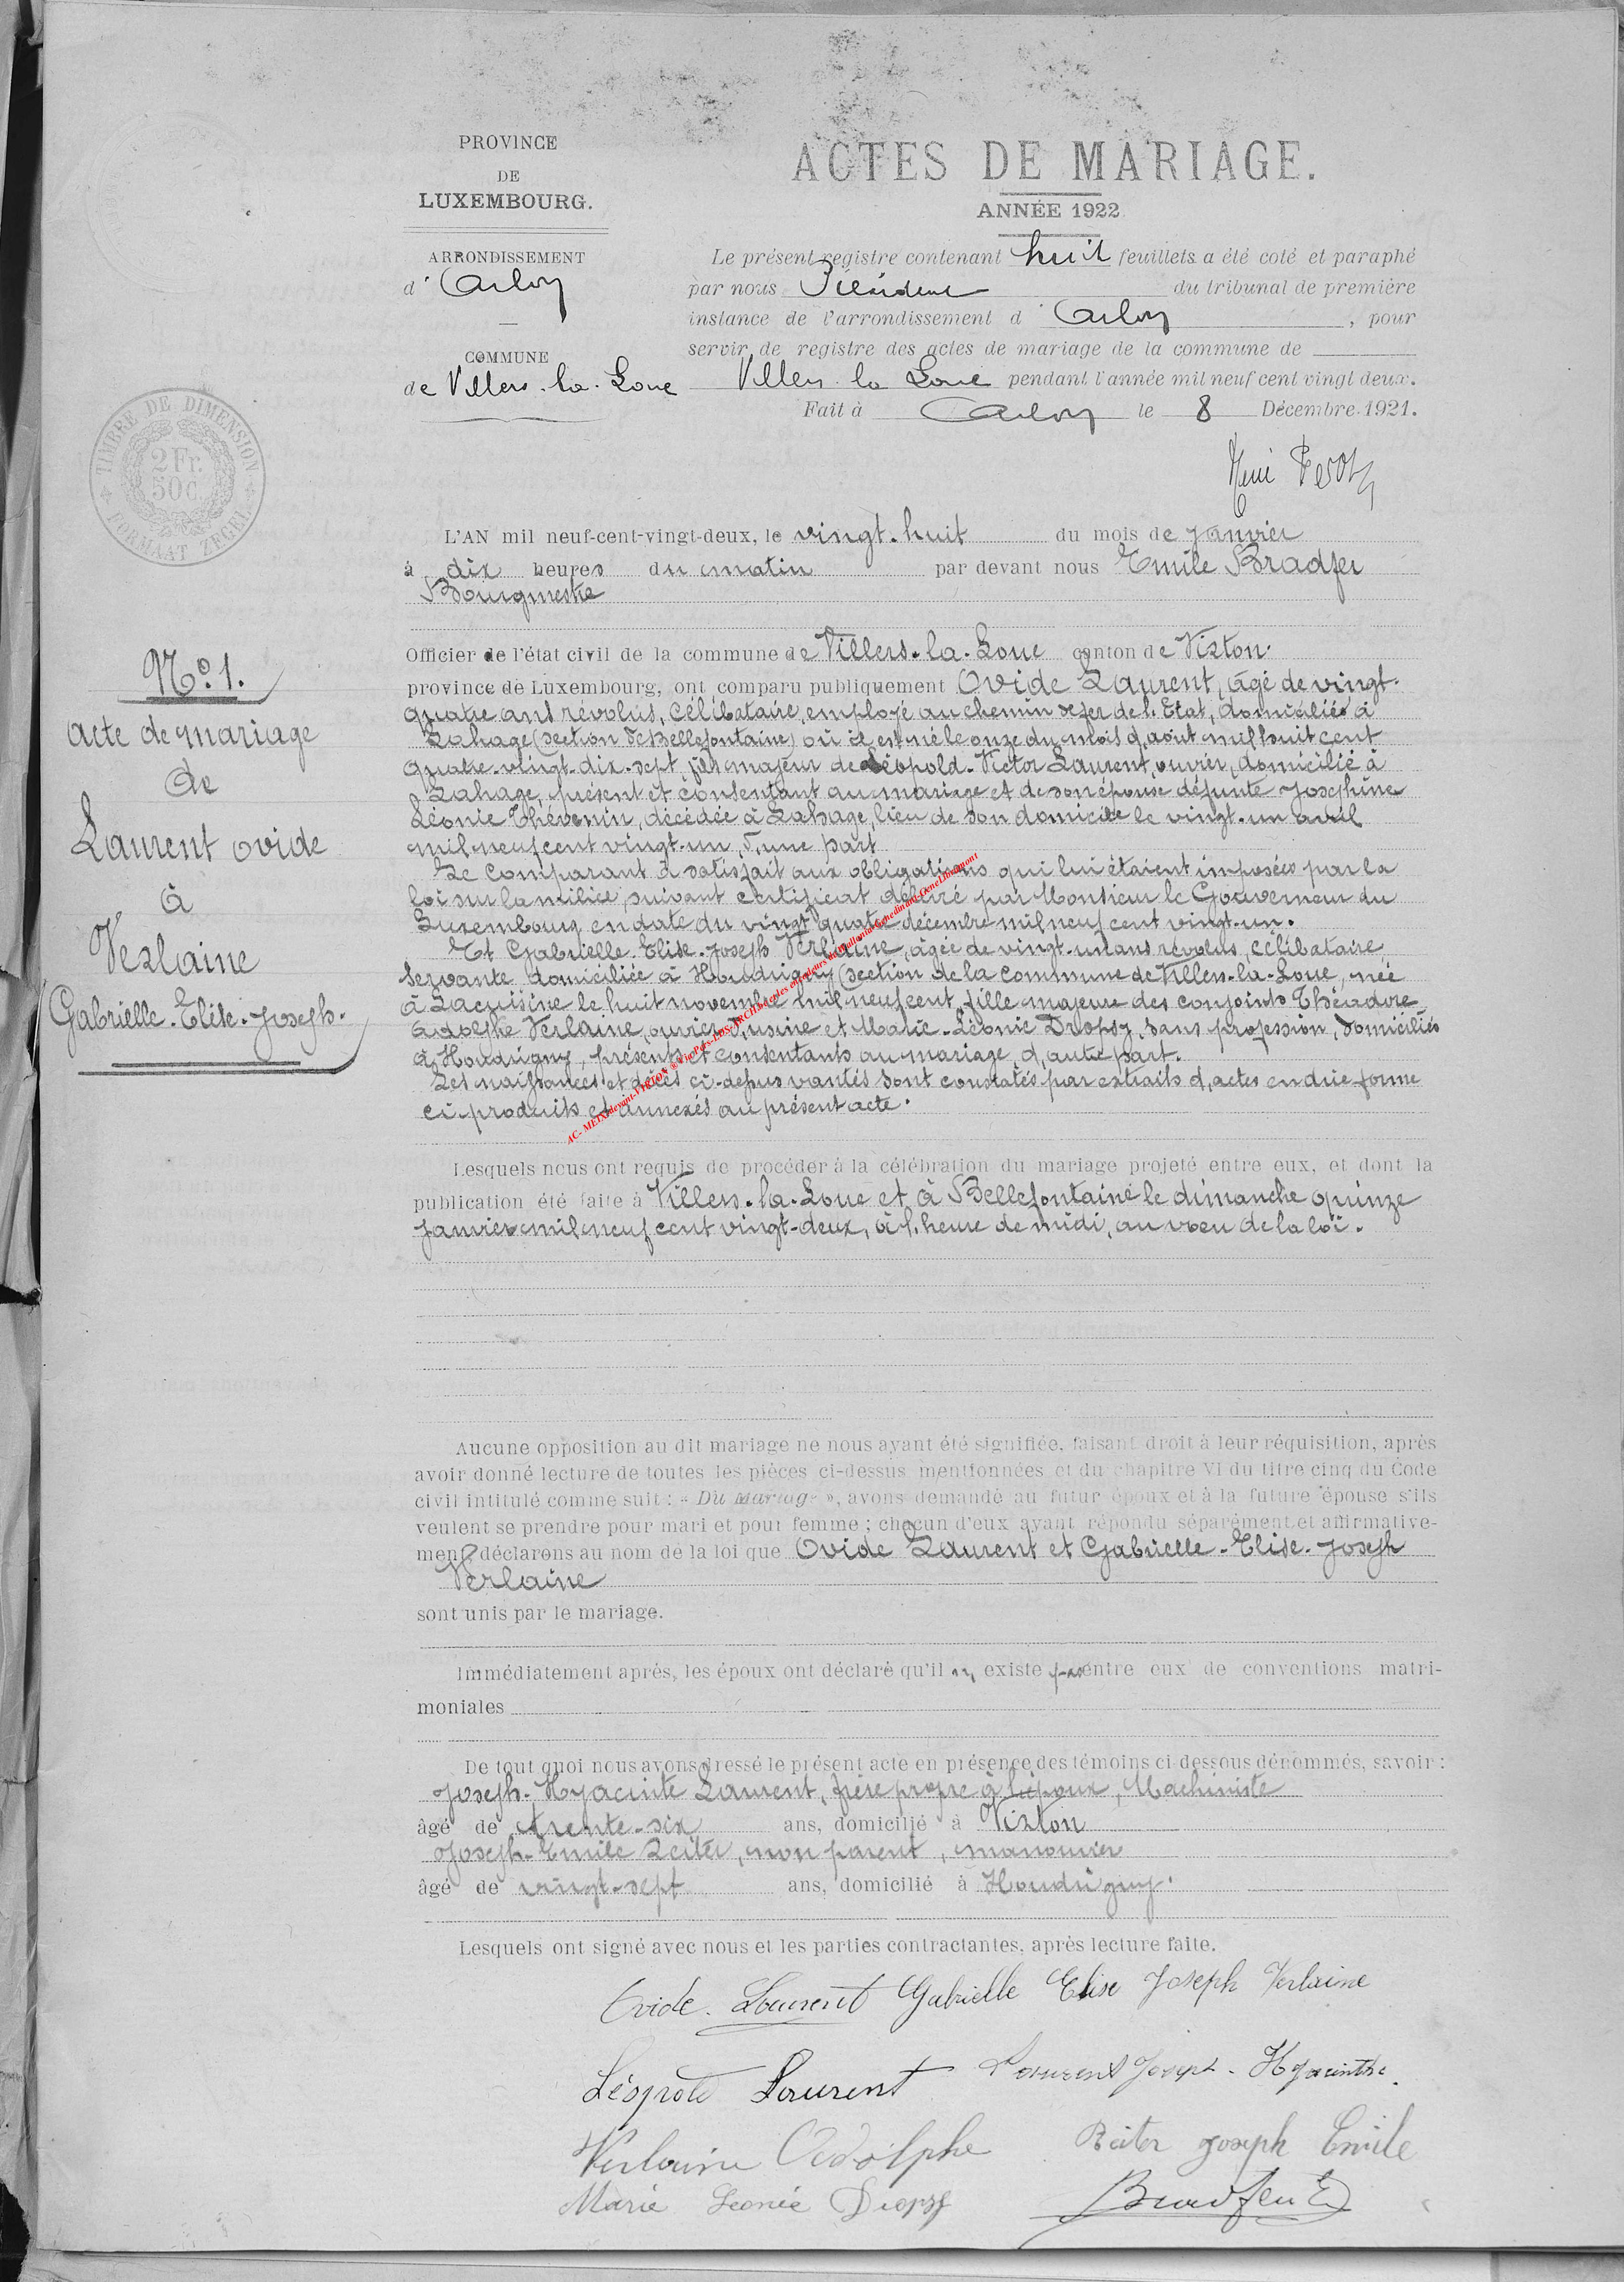 PROVINCE
DE
LUXEMBOURG.
ARRONDISSEMENT
d' Arlon
COMMUNE
de Villers-la-Loue
ACTES DE MARIAGE.
ANNÉE 1922
Le présent registre contenant huit feuillets a été coté et paraphé
par nous Président du tribunal de première
instance de l'arrondissement d Arlon, pour
servir de registre des actes de mariage de la commune de
Villers la Loue pendant l'année mil neuf cent vingt deux.
Fait à Arlon le 8 Décembre 1921.
TIMBRE DE DIMENSION
2 Fr.
50 C.
FORMAAT ZEGEL
L'AN mil neuf-cent-vingt-deux, le vingt-huit du mois de Janvier
à dix heures du matin par devant nous Emile Bradfer
Bourgmestre
Officier de l'état civil de la commune de Villers-la-Loue canton de Virton
province de Luxembourg, ont comparu publiquement Ovide Laurent, âgé de vingt-
quatre ans révolus, célibataire, employé au chemin de fer de l'Etat, domicilié à
Lahage (section de Bellefontaine) où il est né le onze du mois d'août mil huit cent
quatre-vingt-dix-sept, fils majeur de Léopold-Victor Laurent, ouvrier, domicilié à
Lahage, présent et consentant au mariage et de son épouse défunte Joséphine
Léonie Thévenin, décédée à Lahage, lieu de son domicile le vingt-un avril
mil neuf cent vingt-un, d'une part
Le comparant a satisfait aux obligations qui lui étaient imposées par la
loi sur la milice, suivant certificat délivré par Monsieur le Gouverneur du
Luxembourg en date du vingt quatre décembre mil neuf cent vingt-un.
Et Gabrielle-Elise-Joseph Verlaine, âgée de vingt-un ans révolus, célibataire,
servante, domiciliée à Houdrigny (section de la commune de Villers-la-Loue, née
à Lacuisine le huit novembre mil neuf cent, fille majeure des conjoints Théodore
Adolphe Verlaine, ouvrier d'usine et Marie-Léonie Dropsy, sans profession, domiciliés
à Houdrigny, présents et consentants au mariage, d'autre part.
Les naissances et décès ci-dessus vantés sont constatés par extraits d'actes en due forme
ci-produits et annexés au présent acte.
N° 1.
Acte de mariage
de
Laurent Ovide
à
Verlaine
Gabrielle-Elise-Joseph.
Lesquels nous ont requis de procéder à la célébration du mariage projeté entre eux, et dont la
publication été faite à Villers-la-Loue et à Bellefontaine le dimanche quinze
Janvier mil neuf cent vingt-deux, à l'heure de midi, au voeu de la loi.
Aucune opposition au dit mariage ne nous ayant été signifiée, faisant droit à leur réquisition, après
avoir donné lecture de toutes les pièces ci-dessus mentionnées et du chapitre VI du titre cinq du Code
civil intitulé comme suit : « Du Mariage », avons demandé au futur époux et à la future épouse s'ils
veulent se prendre pour mari et pour femme ; chacun d'eux ayant répondu séparément et affirmative-
ment déclarons au nom de la loi que Ovide Laurent et Gabrielle-Elise-Joseph
Verlaine
sont unis par le mariage.
Immédiatement après, les époux ont déclaré qu'il n' existe pas entre eux de conventions matri-
moniales
De tout quoi nous avons dressé le présent acte en présence des témoins ci-dessous dénommés, savoir :
Joseph-Hyacinte Laurent, frère propre à l'époux, Machiniste
âgé de trente-six ans, domicilié à Virton
Joseph-Emile Reiter, non parent, manouvrier
âgé de vingt-sept ans, domicilié à Houdrigny.
Lesquels ont signé avec nous et les parties contractantes, après lecture faite.
Ovide Laurent Gabrielle Elise Joseph Verlaine
Léopold Laurent Laurent Joseph-Hyacinthe.
Verlaine Adolphe Reiter Joseph Emile
Marie Léonie Dropsy Bradfer E